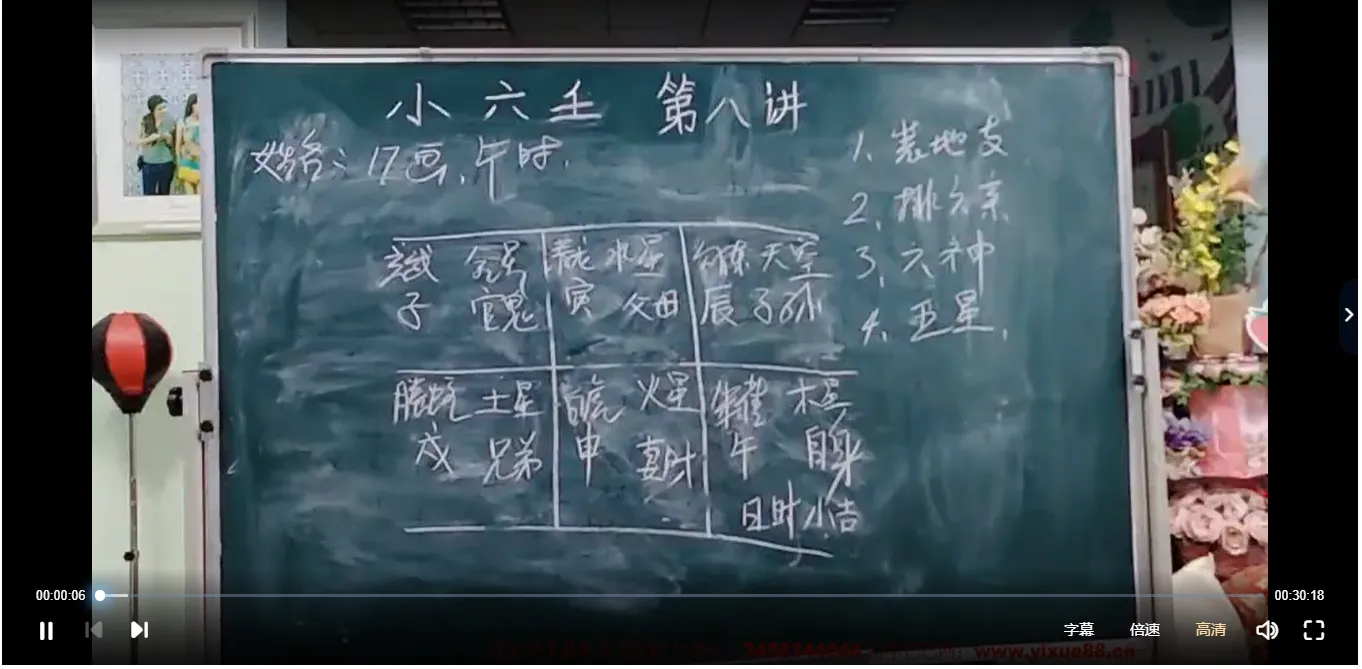 小六壬 第八讲
姓名: 17画、午时.
1、装地支
2、排六亲
3、六神
4、五星.
玄武 金星 青龙 水星 勾陈 天空
子 官鬼 寅 父母 辰 子孙
腾蛇 土星 白虎 火星 朱雀 木星
戌 兄弟 申 妻财 午 自身
日时小吉
00:00:06
00:30:18
字幕 倍速 高清
www.yixue88.cn